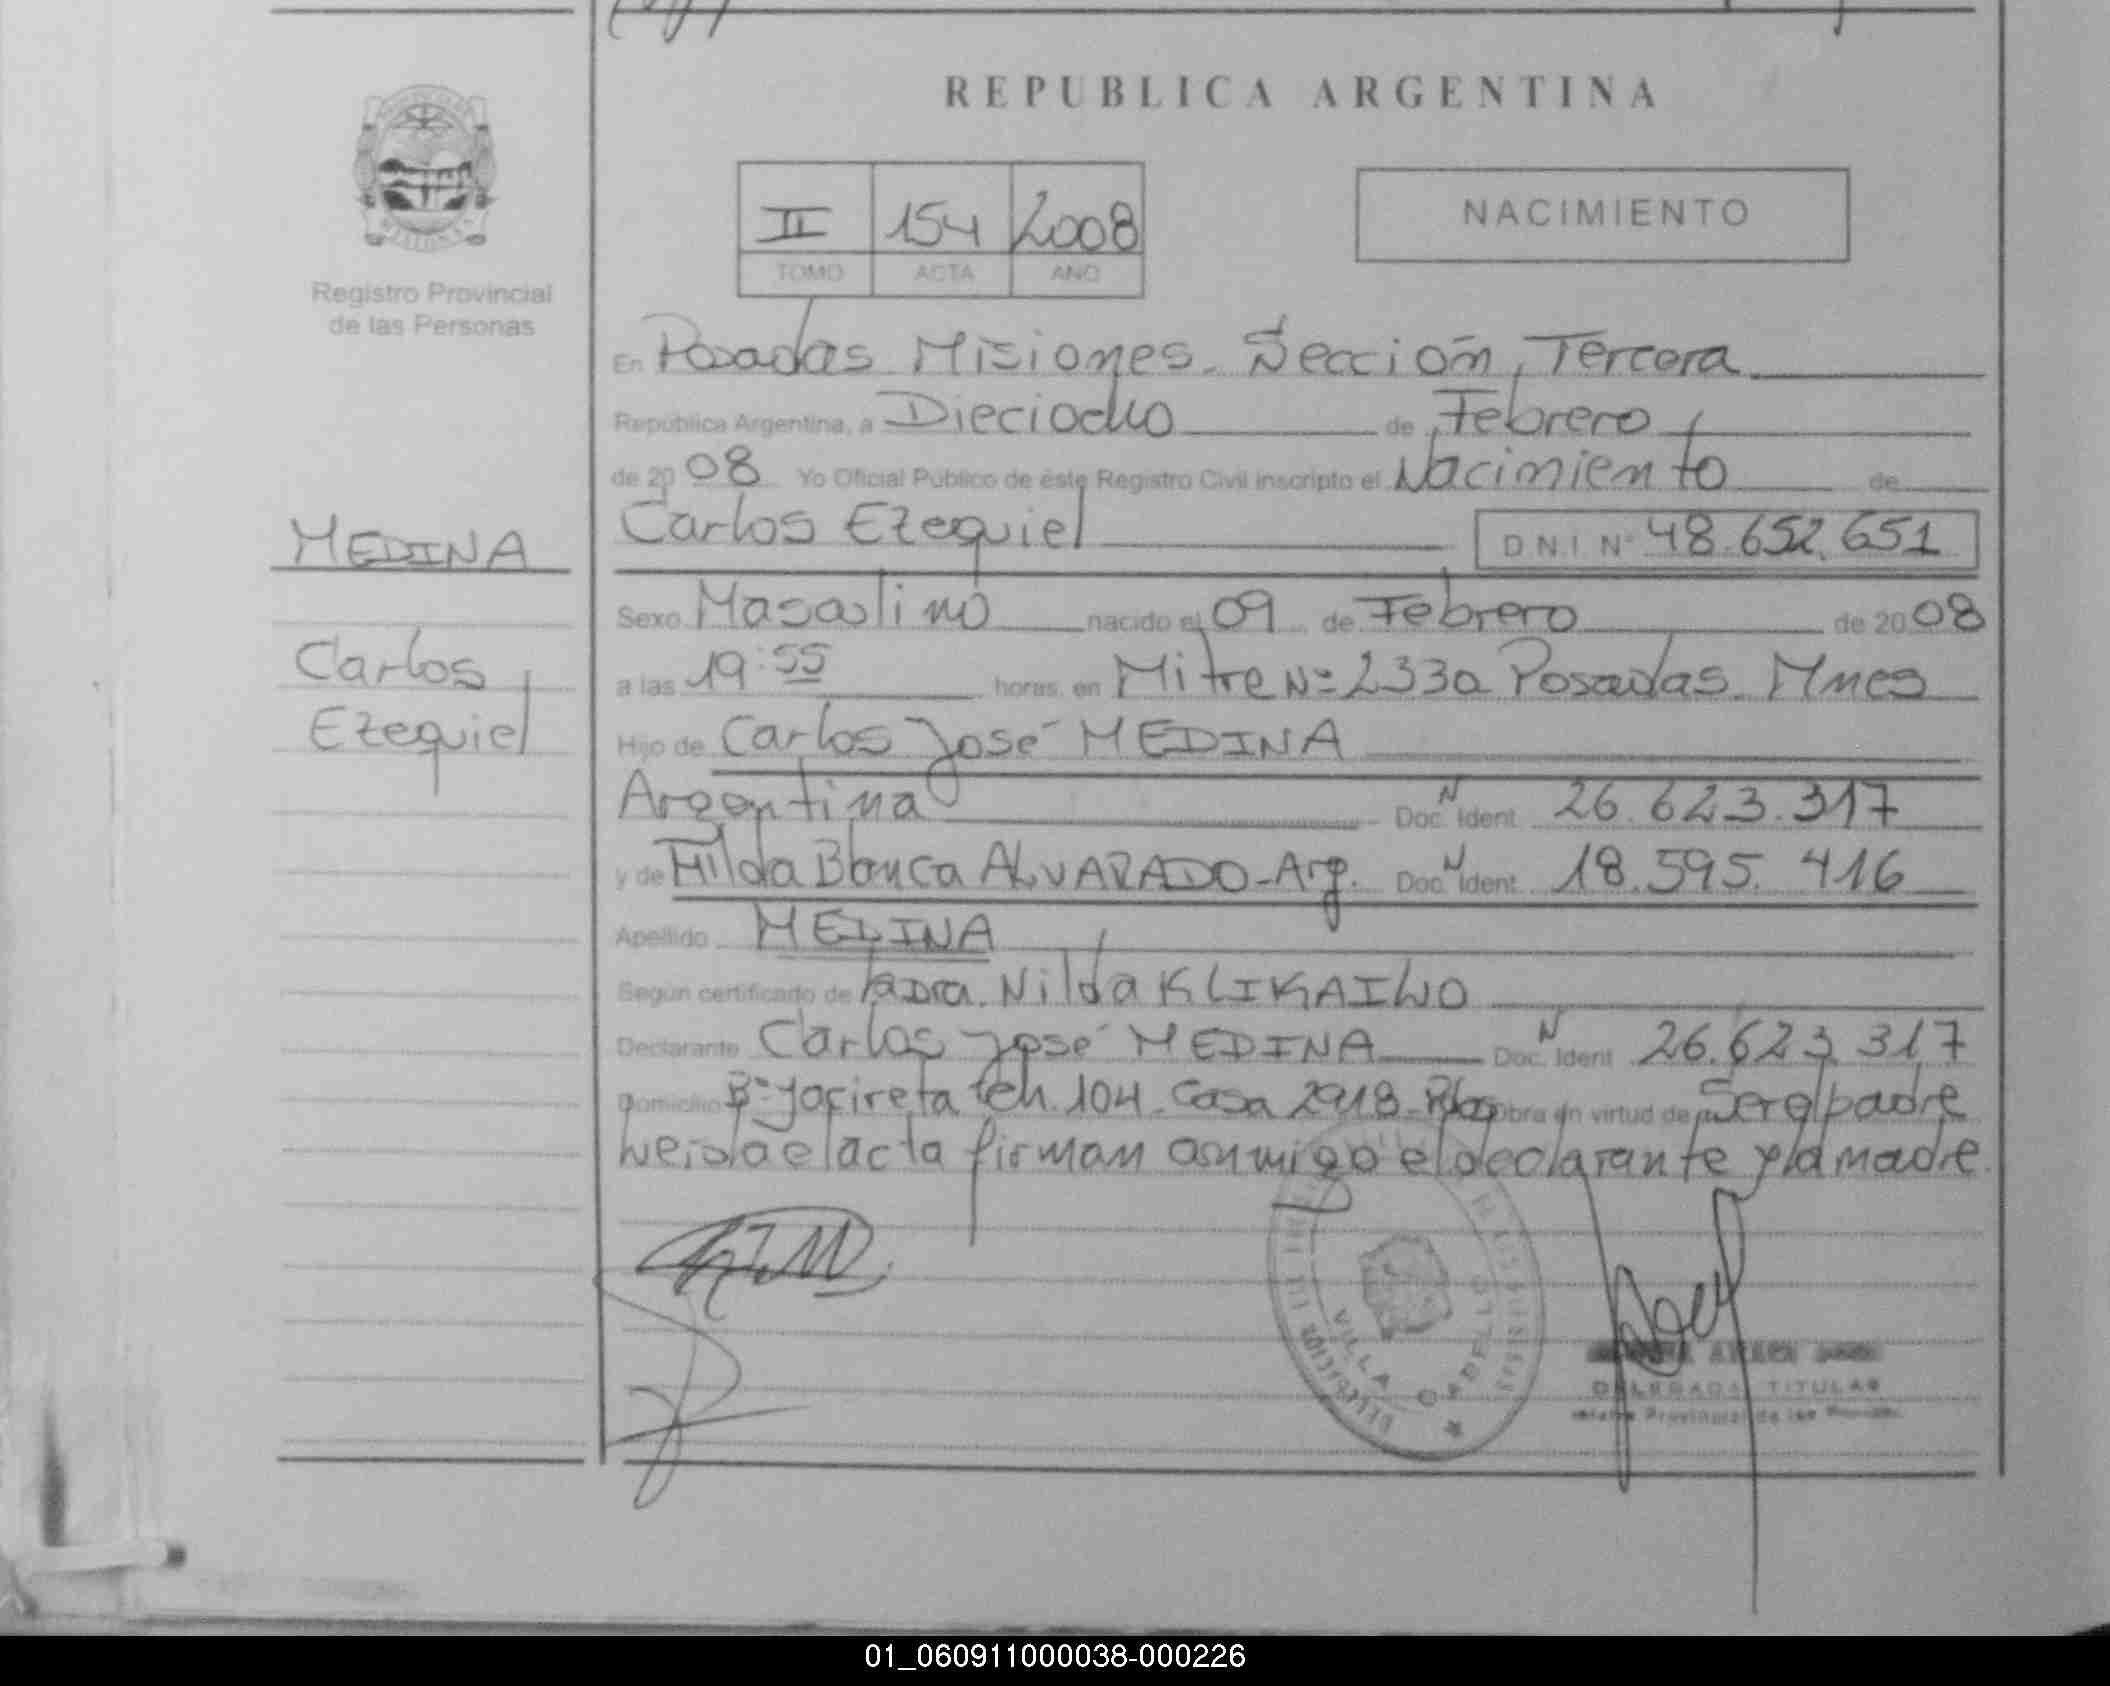 REPUBLICA ARGENTINA
II 154 2008
TOMO ACTA AÑO
NACIMIENTO
Registro Provincial
de las Personas
En Posadas Misiones. Sección Tercera
República Argentina, a Dieciocho de Febrero
de 2008 Yo Oficial Público de éste Registro Civil inscripto el Nacimiento de
MEDINA
Carlos Ezequiel D.N.I. Nº 48.652.651
Sexo Masculino nacido el 09 de Febrero de 2008
Carlos
Ezequiel
a las 19:55 horas en Mitre Nº 2330 Posadas. Mnes
Hijo de Carlos José MEDINA
Argentina Doc. N Ident. 26.623.317
y de Hilda Blanca ALVARADO-Arg. Doc. N Ident. 18.595.416
Apellido MEDINA
Según certificado de la Dra. Nilda
Declarante Carlos José MEDINA Doc. N Ident. 26.623.317
Domicilio Bº Yacireta Ch. 104. Casa 2918. Pdas Obra en virtud de Ser el padre
Leida el acta firman conmigo el declarante y la madre.
VILLA CABELLO
DELEGADA TITULAR
Provincial de las
01_060911000038-000226